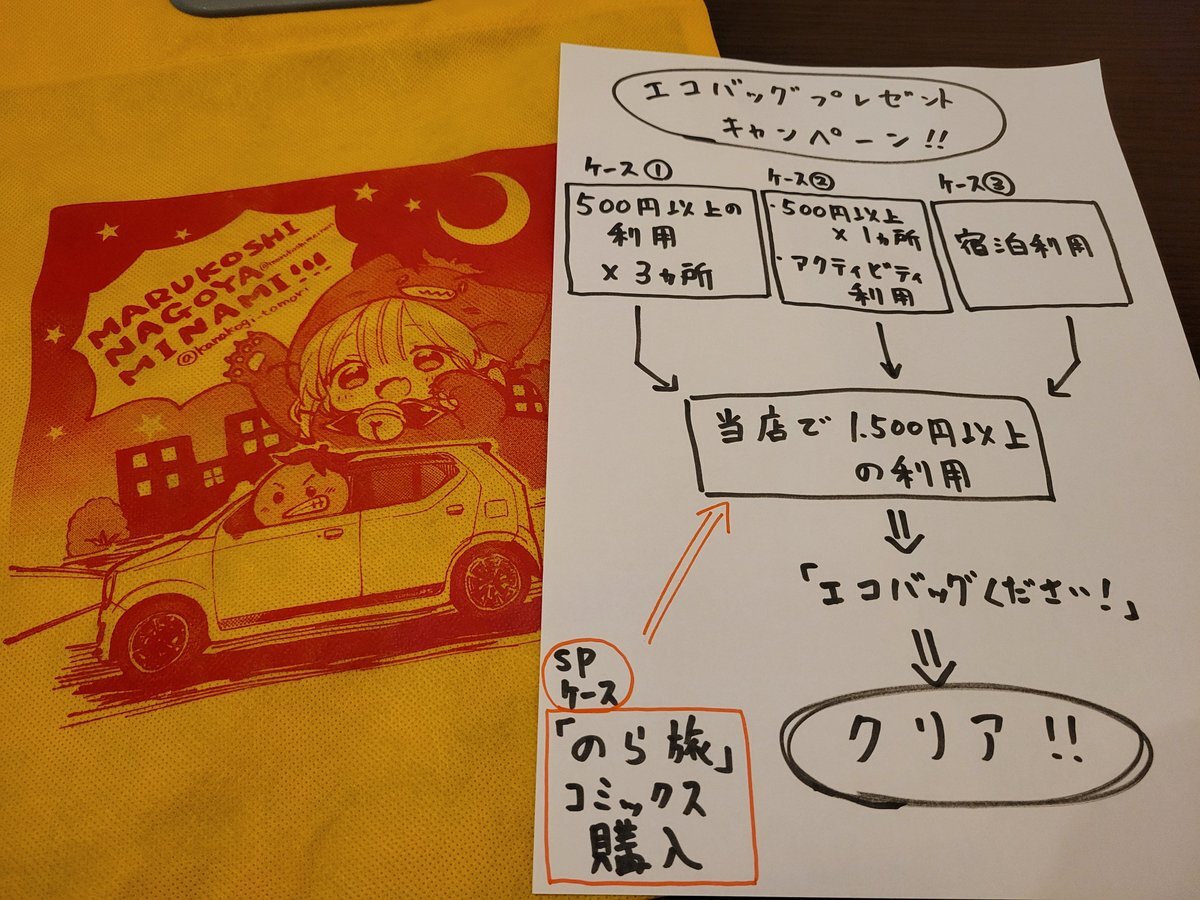 MARUKOSHI
NAGOYA
MINAMI!!!
@karakogi.tomori
エコバッグプレゼント
キャンペーン!!
ケース①
500円以上の
利用
×3ヵ所
ケース②
・500円以上
×1ヵ所
・アクティビティ
利用
ケース③
宿泊利用
当店で1.500円以上
の利用
「エコバッグください!」
クリア!!
SP
ケース
「のら旅」
コミックス
購入